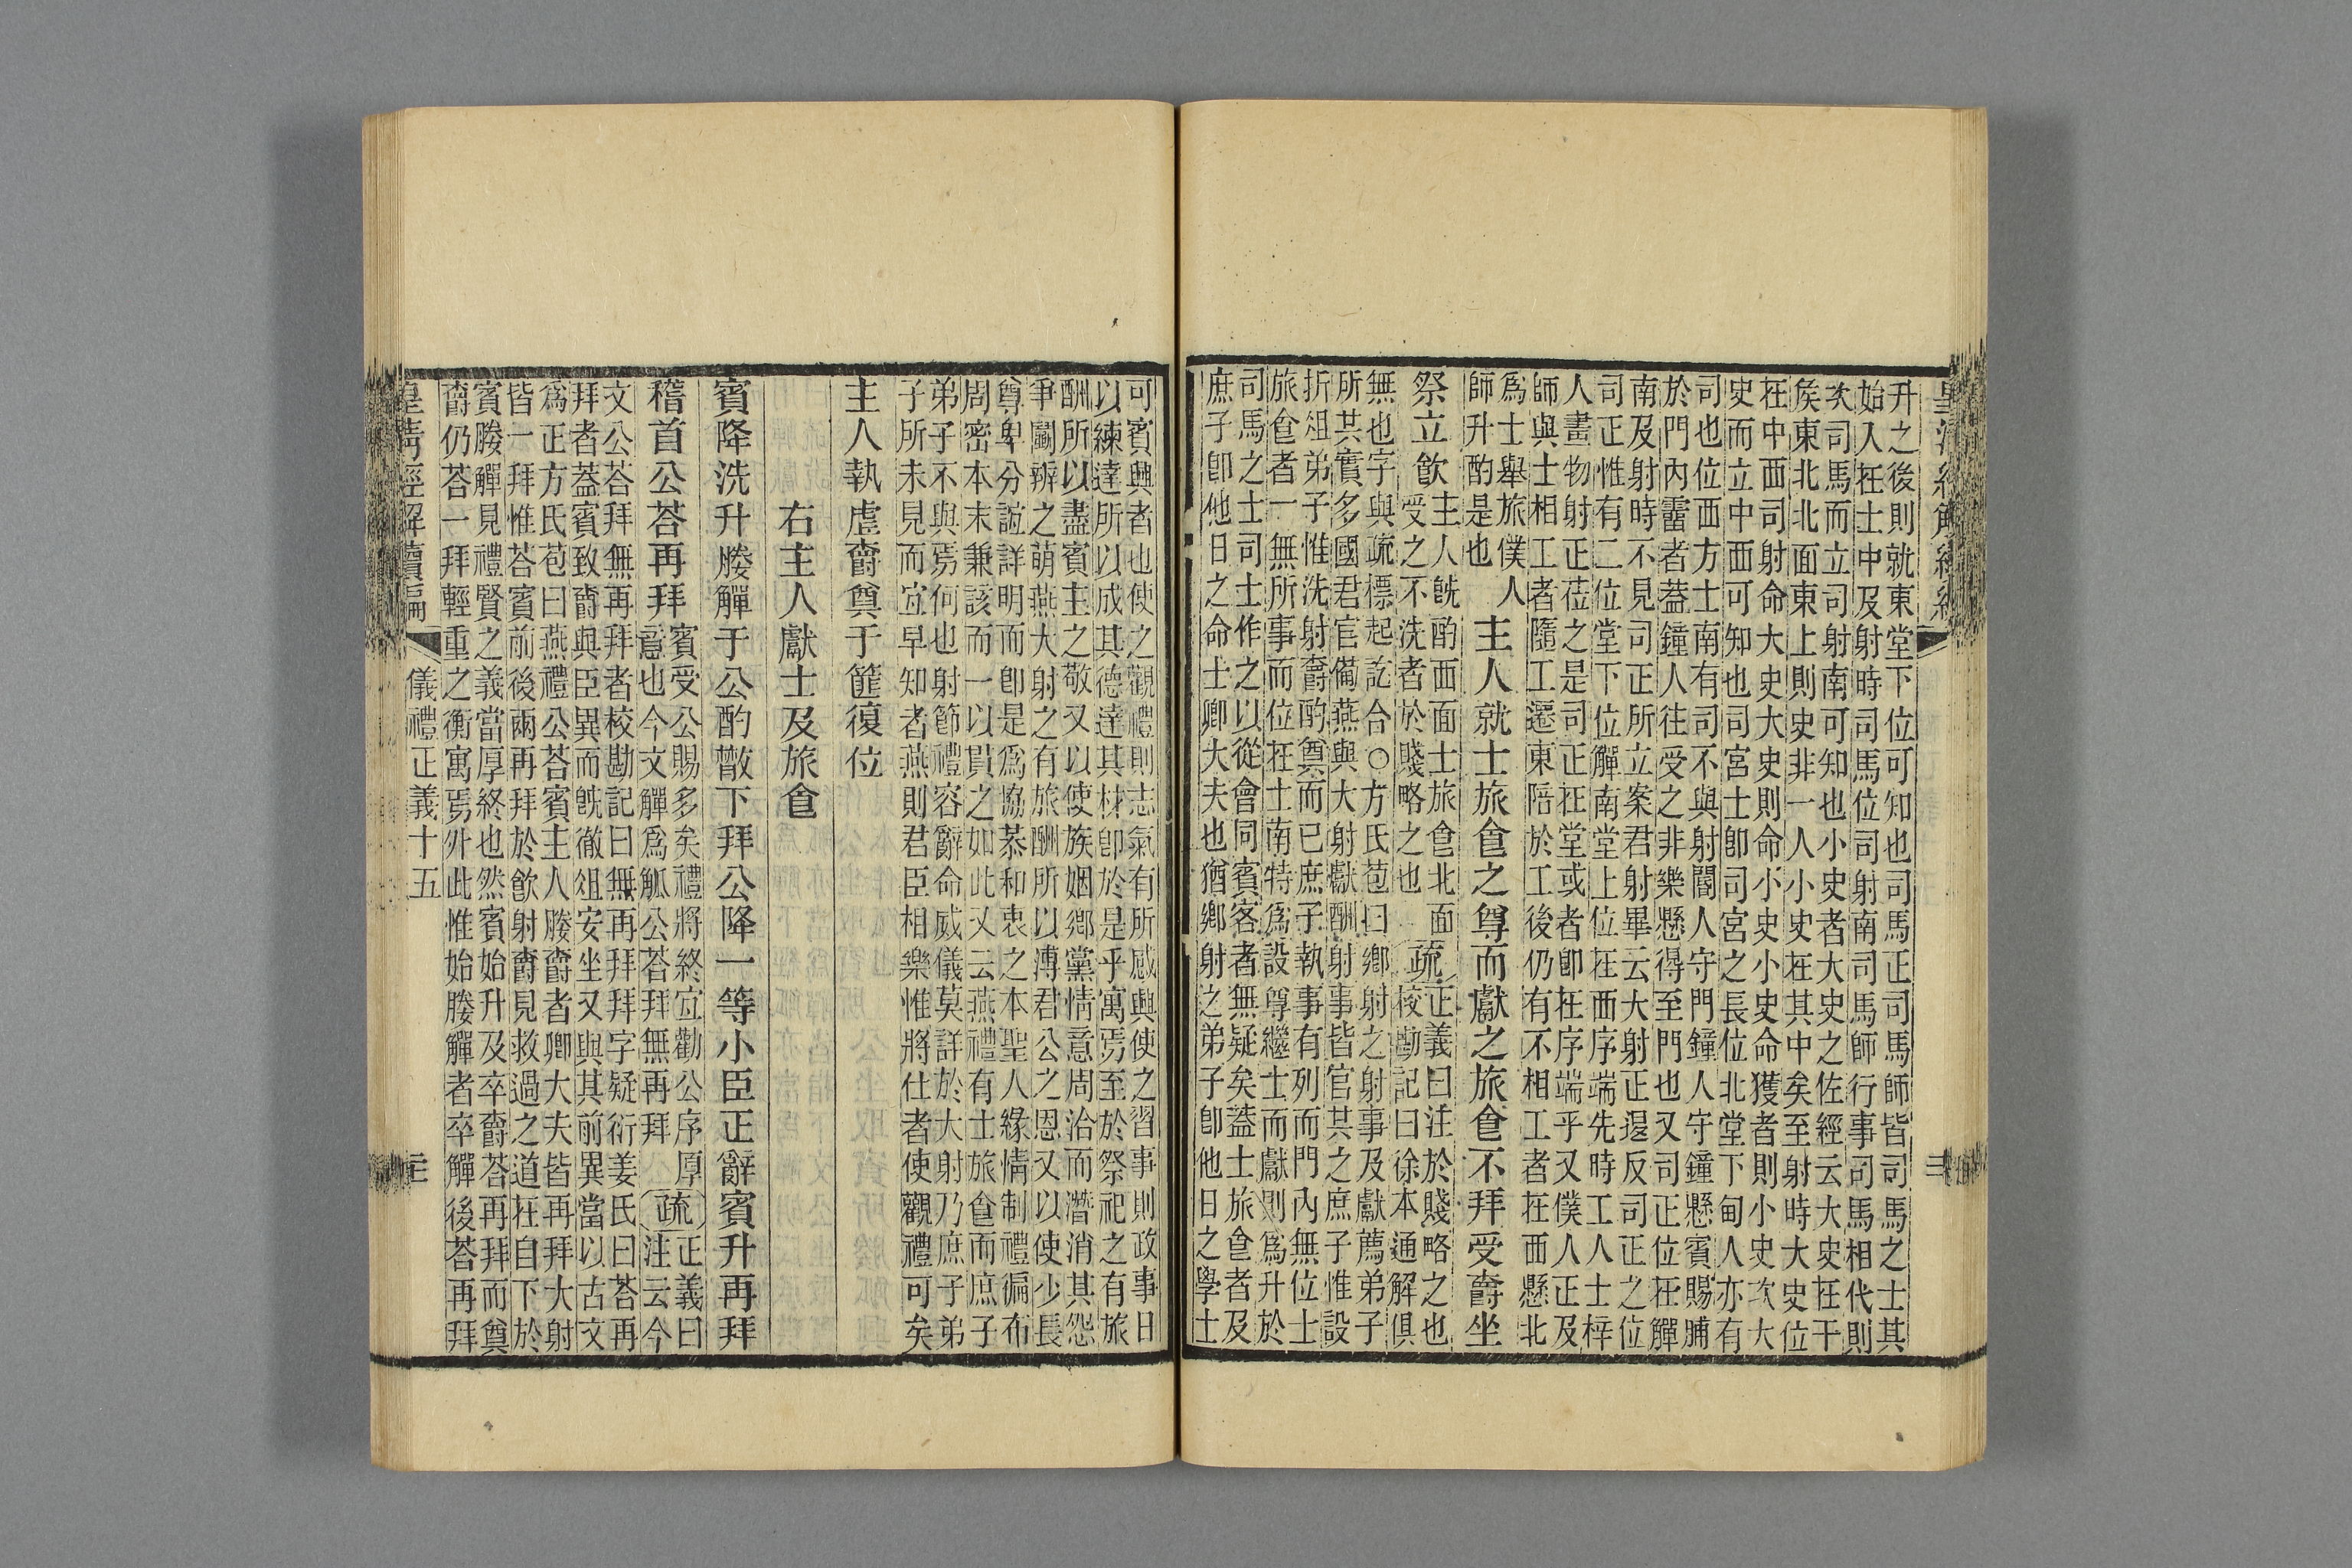 升之後則就東堂下位可知也司馬正司馬師皆司馬之士其
始入在士中及射時司馬位司射南司馬師行事司馬相代則
次司馬而立司射南可知也小史者大史之佐經云大史在干
矦東北北面東上則史非一人小史在其中矣至射時大史位
在中西司射命大史大史則命小史小史命獲者則小史次大
史而立中西可知也司宮士卽司宮之長位北堂下甸人亦有
司也位西方士南有司不與射閽人守門鐘人守鐘懸賓賜脯
於門內霤者蓋鐘人往受之非樂懸得至門也又司正位在觶
南及射時不見司正所立案君射畢云大射正退反司正之位
司正惟有二位堂下位觶南堂上位在西序端先時工人士梓
人畫物射正莅之是司正在堂或者卽在序端乎又僕人正及
師與士相工者隨工遷東陪於工後仍有不相工者在西懸北
爲士舉旅僕人
師升酌是也
主人就士旅食之尊而獻之旅食不拜受爵坐
祭立飮
主人旣酌西面士旅食北面
受之不洗者於賤略之也
疏
正義曰注於賤略之也
校勘記曰徐本通解俱
無也字與疏標起訖合〇方氏苞曰鄉射之射事及獻薦弟子
所其實多國君官備燕與大射獻酬射事皆官其之庶子惟設
折俎弟子惟洗射爵酌奠而已庶子執事有列而門內無位士
旅食者一無所事而位在士南特爲設尊繼士而獻則爲升於
司馬之士司士作之以從會同賓客者無疑矣蓋士旅食者及
庶子卽他日之命士卿大夫也猶鄉射之弟子卽他日之學士
可賓興者也使之觀禮則志氣有所感興使之習事則政事日
以練達所以成其德達其材卽於是乎寓焉至於祭祀之有旅
酬所以盡賓主之敬又以使族姻鄉黨情意周洽而潛消其怨
爭鬭辨之萌燕大射之有旅酬所以溥君公之恩又以使少長
尊卑分誼詳明而卽是爲協恭和衷之本聖人緣情制禮徧布
周密本末兼該而一以貫之如此又云燕禮有士旅食而庶子
弟子不與焉何也射節禮容辭命威儀莫詳於大射乃庶子弟
子所未見而宜早知者燕則君臣相樂惟將仕者使觀禮可矣
主人執虛爵奠于篚復位
右主人獻士及旅食
賓降洗升媵觶于公酌散下拜公降一等小臣正辭賓升再拜
稽首公荅再拜
賓受公賜多矣禮將終宜勸公序厚
意也今文觶爲觚公荅拜無再拜
疏
正義曰
注云今
文公荅拜無再拜者校勘記曰無再拜拜字疑衍姜氏曰荅再
拜者蓋賓致爵與臣異而旣徹俎安坐又與其前異當以古文
爲正方氏苞曰燕禮公荅賓主人媵爵者卿大夫皆再拜大射
皆一拜惟荅賓前後兩再拜於飮射爵見救過之道在自下於
賓媵觶見禮賢之義當厚終也然賓始升及卒爵荅再拜而奠
爵仍荅一拜輕重之衡寓焉外此惟始媵觶者卒觶後荅再拜
皇淸經解續編
儀禮正義十五